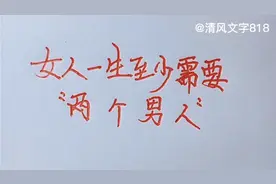 @清风文字818
女人一生至少需要
“两个男人”